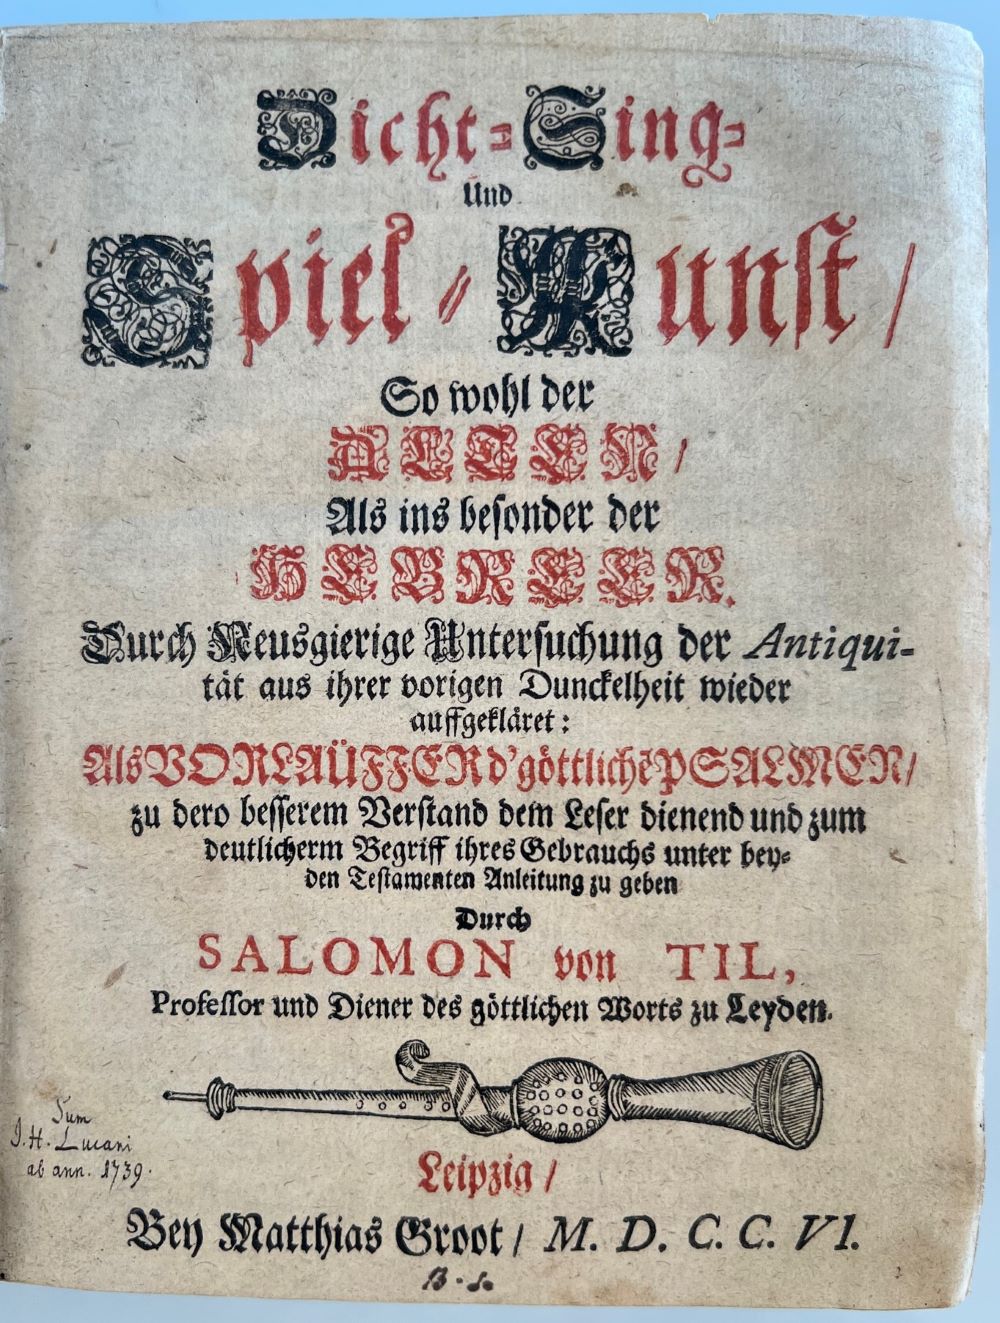 Dicht-Sing-
Und
Spiel-Kunst/
So wohl der
ALTEN/
Als ins besonder der
HEBREER.
Durch Neusgierige Untersuchung der Antiqui-
tät aus ihrer vorigen Dunckelheit wieder
auffgekläret:
Als VORLAÜFFER d'göttlichē PSALMEN/
zu dero besserem Verstand dem Leser dienend und zum
deutlicherm Begriff ihres Gebrauchs unter bey-
den Testamenten Anleitung zu geben
Durch
SALOMON von TIL,
Professor und Diener des göttlichen Worts zu Leyden.
Sum
J. H. Lucani
ab ann. 1739.
Leipzig/
Bey Matthias Groot/ M. D. C. C. VI.